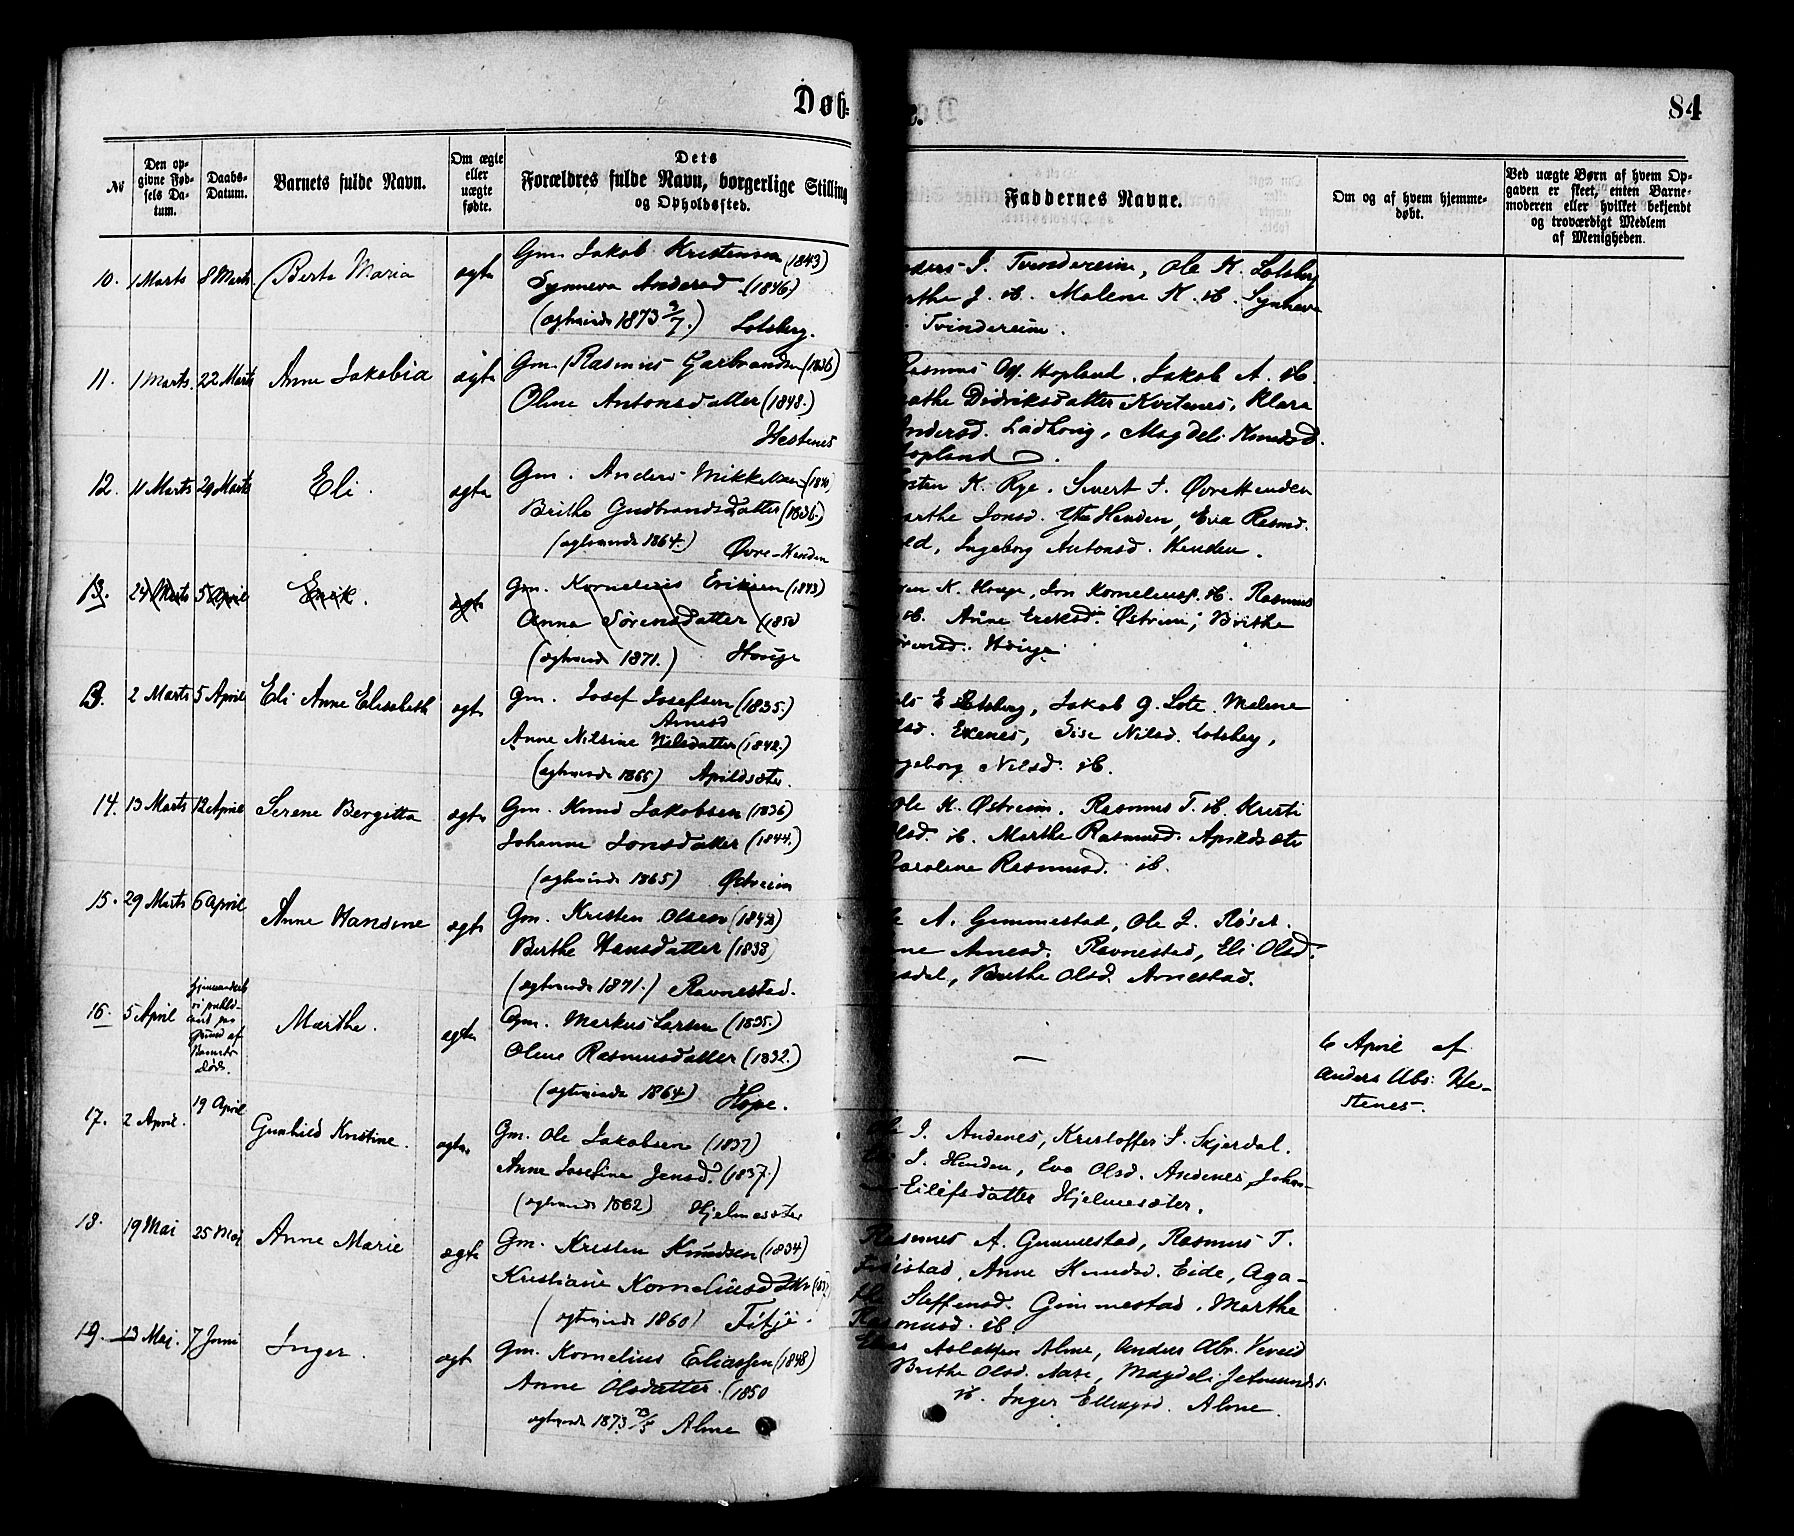 Døb-
84
№
Den op-
givne Fød-
sels Da-
tum.
Daabs-
Datum.
Barnets fulde Navn.
Om ægte
eller
uægte
fødte.
Dets
Forældres fulde Navn, borgerlige Stilling
og Opholdssted.
Faddernes Navne.
Om og af hvem hjemme-
døbt.
Ved uægte Børn af hvem Op-
gaven er skeet, enten Barne-
moderen eller hvilket bekjendt
og troværdigt Medlem
af Menigheden.
10. 1 Marts 8 Marts Berte Maria ægte
Gm. Jakob Kristensen (1843)
Synneva Andersd (1846)
(ægtviede 1873 2/7.) Lotsberg.
J. Tvindereim, Ole K. Lotsberg
J. ib. Malene K. ib. Synneva
Tvindereim.
11. 1 Marts 22 Marts Anne Jakobia ægte
Gm. Rasmus Gjarbrandsen (1836)
Oline Antonsdatter (1848.)
Hestenes
Rasmus Hopland. Jakob A. ib.
Didriksdatter Kvitenes, Klara
Andersd. Ladhong, Magdeli Knudsd.
Hopland.
12. 11 Marts 29 Marts Eli. ægte
Gm. Anders Mikkelsen
Brithe Gudbrandsdatter (1836.)
(ægtviede 1864.) Øvre-Henden
K. Rye. Sivert J. Øvre Henden
Marthe Jonsd. Ytre Henden, Eva Rasmd.
Ingeborg Antonsd. Henden.
13. 24 Marts 5 April Erik. ægte
Gm. Kornelius Eriksen (1843)
Anna Sørensdatter (1850
(ægtviede 1871.) Houge
K. Houge, Jon Korneliuss. ib. Rasmus
ib. Anne Eriksd. Østreim, Brithe
Houge
13. 2 Marts 5 April Eli Anne Elisabeth ægte
Gm. Josef Josefsen (1835.)
Arnesd
Anne Nilsine Nilsdatter (1842.)
(ægtviede 1865) Apildsæter.
E Lotsberg, Jakob G. Lote. Malene
Exenes, Sise Nilsd. Lotsberg,
Ingeborg Nilsd. ib.
14. 13 Marts 12 April Serene Bergitta ægte
Gm. Knud Jakobsen (1836)
Johanne Jonsdatter (1844.)
(ægtviede 1865) Østreim
Ole K. Østreim. Rasmus T. ib. Kristi
Olsd. ib. Marthe Rasmusd. Apildsæte
Karolene Rasmusd. ib.
15. 29 Marts 6 April Anne Hansine ægte
Gm. Kristen Olsen (1842)
Berthe Hansdatter (1833)
(ægtviede 1871.) Ravnestad.
A. Gimmestad, Ole J. Røset.
Arnesd. Ravnestad, Eli Olsd.
Brithe Olsd. Arnestad.
16. 5 April
Grund af
Barnets
Død.
Marthe. ægte
Gm. Markus Larsen (1835.)
Oline Rasmusdatter (1832.)
(ægtviede 1864) Hope.
—
6 April af
Anders Abs: He-
stenes.
17. 2 April. 19 April Gunhild Kristine. ægte.
Gm. Ole Jakobsen (1837)
Anne Josefine Jensd. (1837.)
(ægtviede 1862) Hjelmesæter
Ole J. Andenes, Kristoffer J. Skjerdal.
J. Henden, Eva Olsd. Andenes, Joha-
Eilefsdatter Hjelmesæter.
18. 19 Mai 25 Mai Anne Marie ægte
Gm. Kristen Knudsen (1834)
Kristiane Korneliusd
(ægtviede 1860) Fitje.
Rasmus A. Gimmestad, Rasmus T.
Anne Knudsd. Eide, Aga-
the Steffensd. Gimmestad. Marthe
Rasmusd. ib.
19. 13 Mai. 7 Juni Inger. ægte
Gm. Kornelius Eliassen (1848)
Anne Olsdatter. (1850
ægtviede 1873 Alme
Elias Aslaksen Alme, Anders Abr. Vereid
Brithe Olsd. Aase, Magdeli Jetmundsd.
ib. Inger Eliasd. Alme.